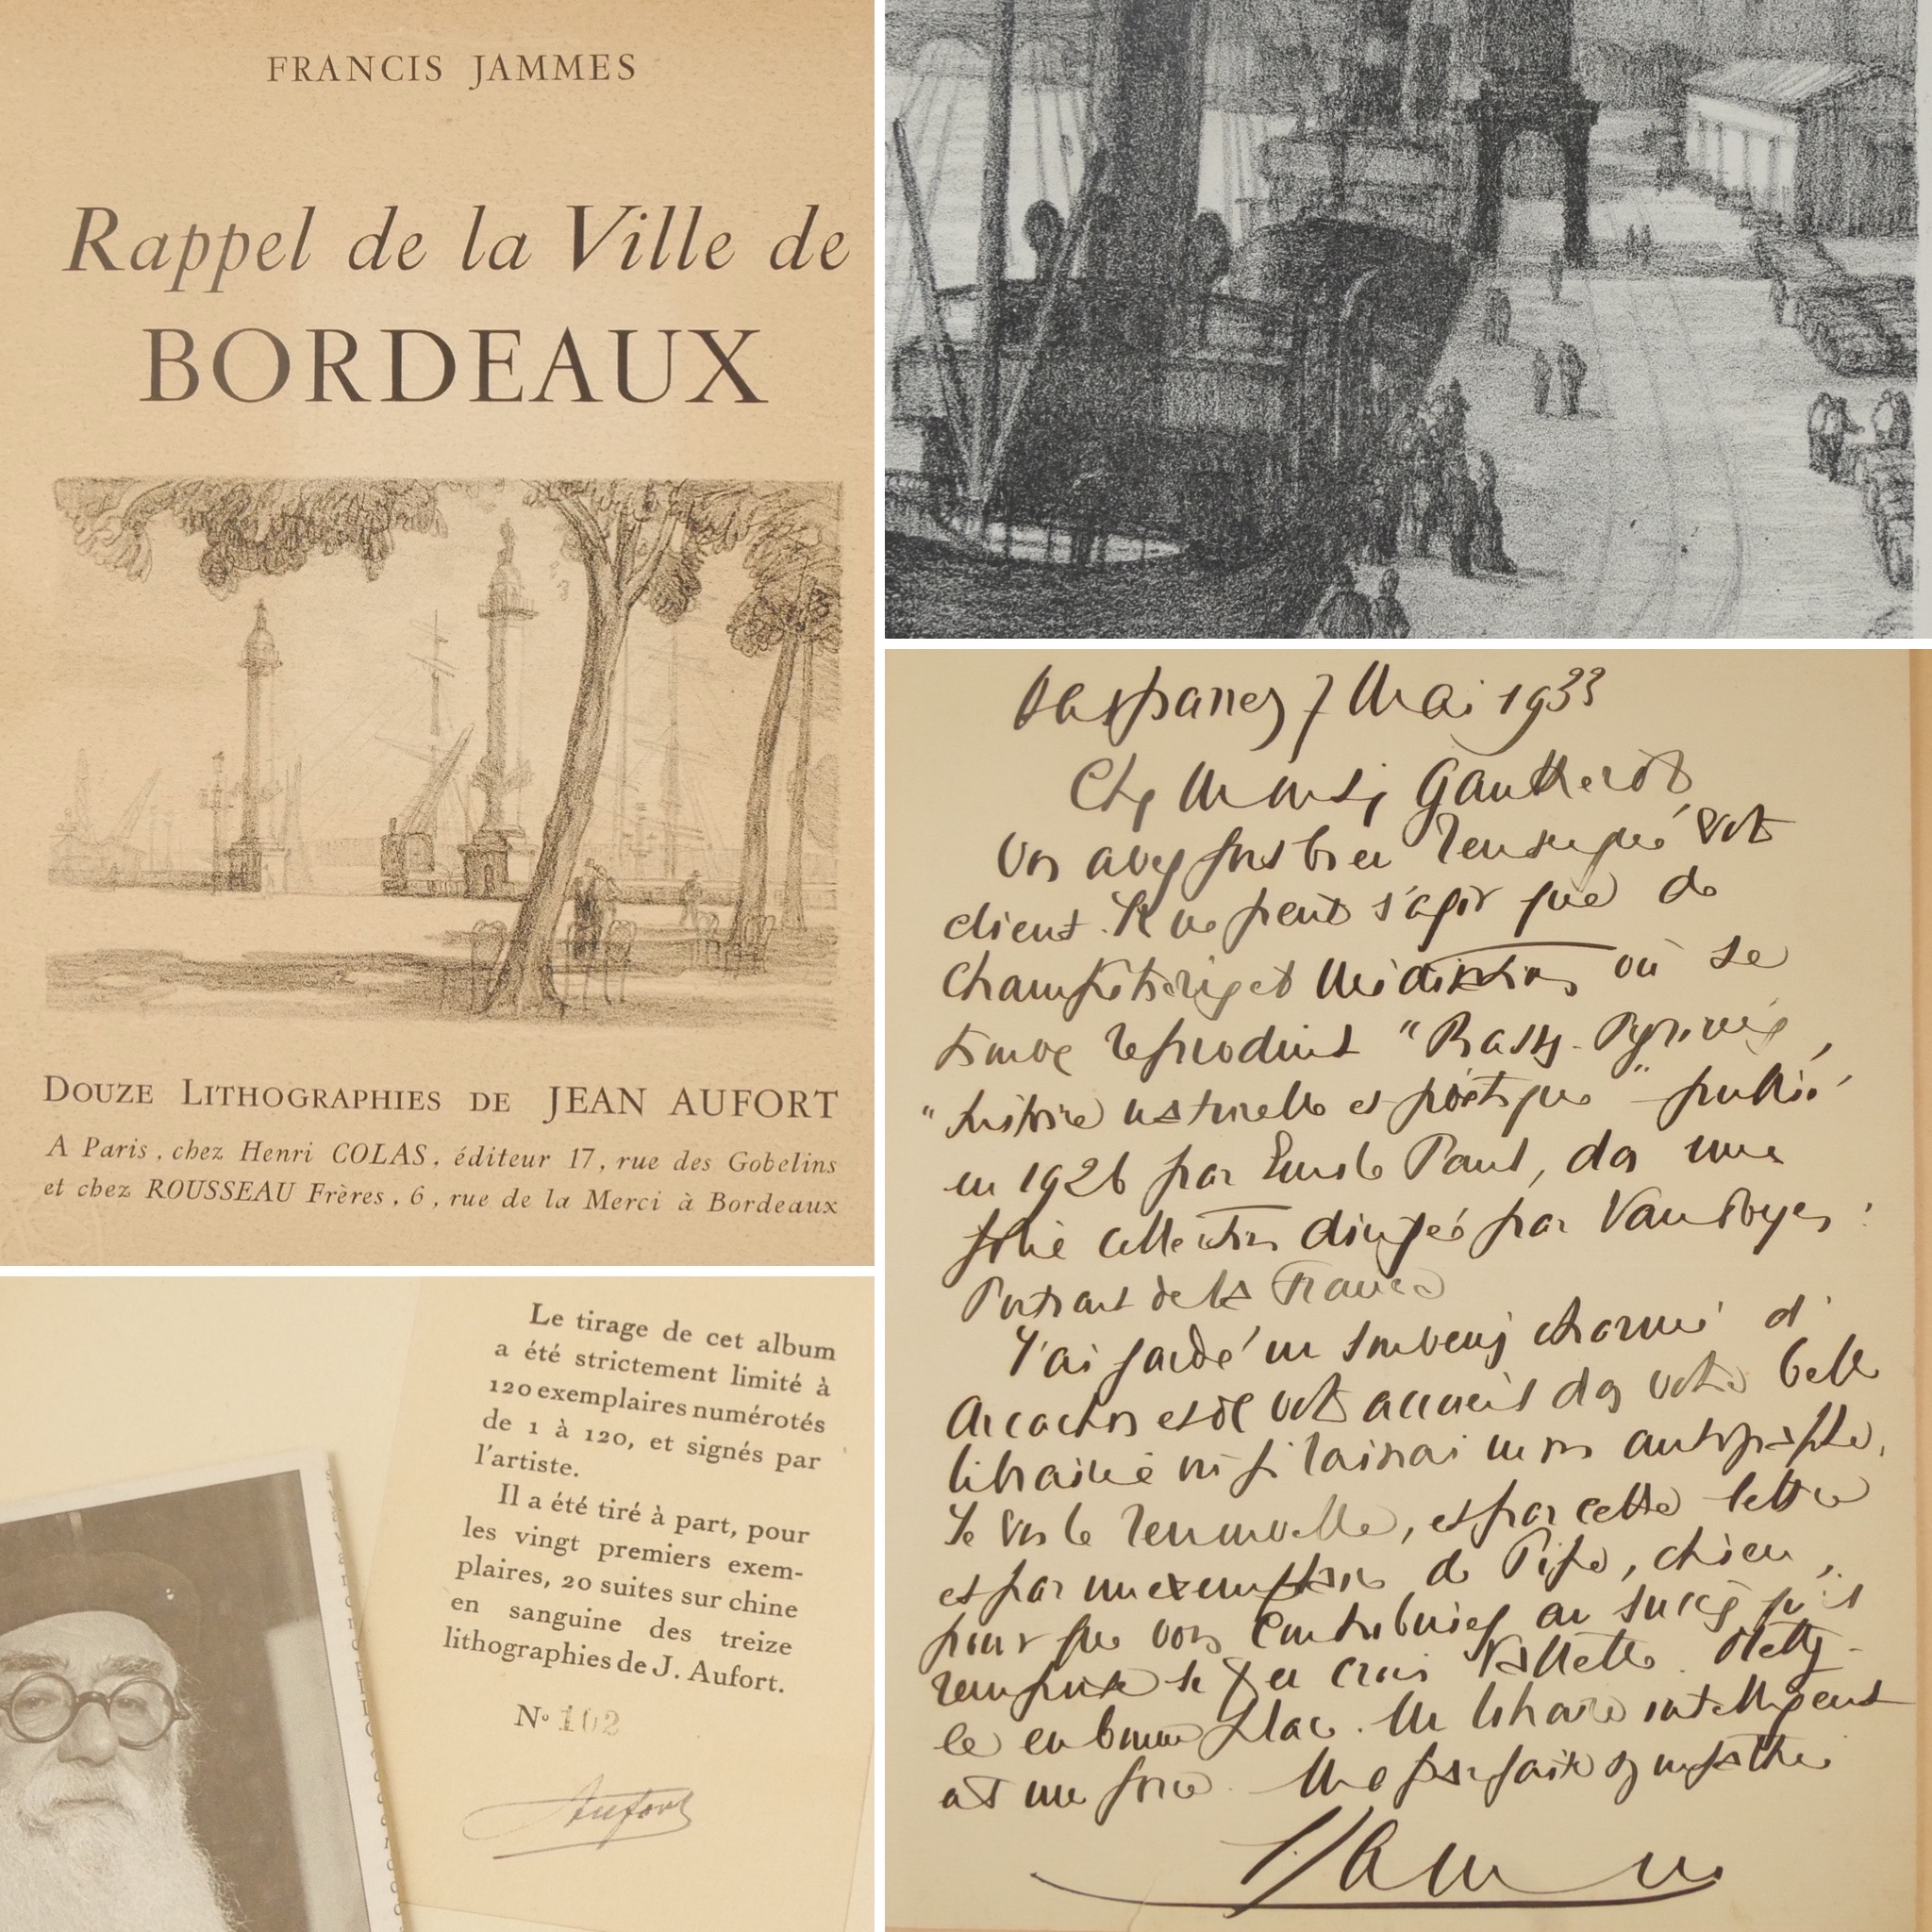 FRANCIS JAMMES
Rappel de la Ville de
BORDEAUX
DOUZE LITHOGRAPHIES DE JEAN AUFORT
A Paris, chez Henri COLAS, éditeur 17, rue des Gobelins
et chez ROUSSEAU Frères, 6, rue de la Merci à Bordeaux
Le tirage de cet album
a été strictement limité à
120 exemplaires numérotés
de 1 à 120, et signés par
l'artiste.
Il a été tiré à part, pour
les vingt premiers exem-
plaires, 20 suites sur chine
en sanguine des treize
lithographies de J. Aufort.
N° 102
Aufort
Hasparren 7 Mai 1933
Cher Monsieur Gautherot
Vous avez fort bien renseigné votre
client. Il ne peut s'agir que de
Champêtreries et Méditations où se
trouve reproduit "Basses-Pyrénées,
"histoire naturelle et poétique" publié
en 1926 par Emile Paul, dans une
jolie collection dirigée par Vaudoyer :
Portrait de la France
J'ai gardé un souvenir charmé d'
Arcachon et de votre accueil dans votre belle
librairie où je laissai mon autographe.
Je vous le renouvelle, et par cette lettre
et par un exemplaire de Pipe, chien,
pour que vous contribuiez au succès qu'il
remporte si j'en crois Vallette. Mettez-
le en bonne place. Un libraire intelligent
est une force. Ma parfaite sympathie
F Jammes